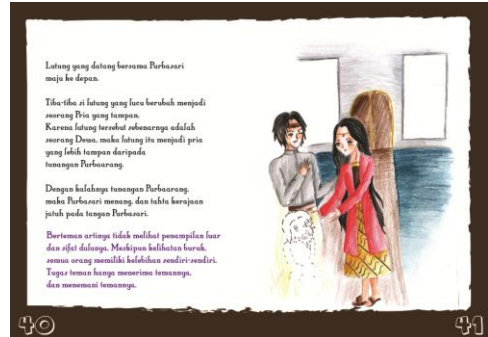 Lutung yang datang bersama Purbasari
maju ke depan.
Tiba-tiba si lutung yang lucu berubah menjadi
seorang Pria yang tampan.
Karena lutung tersebut sebenarnya adalah
seorang Dewa, maka lutung itu menjadi pria
yang lebih tampan daripada
tunangan Purbaarang.
Dengan kalahnya tunangan Purbaarang,
maka Purbasari menang, dan tahta kerajaan
jatuh pada tangan Purbasari.
Berteman artinya tidak melihat penampilan luar
dan sifat dulunya. Meskipun kelihatan buruk,
semua orang memiliki kelebihan sendiri-sendiri.
Tugas teman hanya menerima temannya,
dan menemani temannya.
40
41